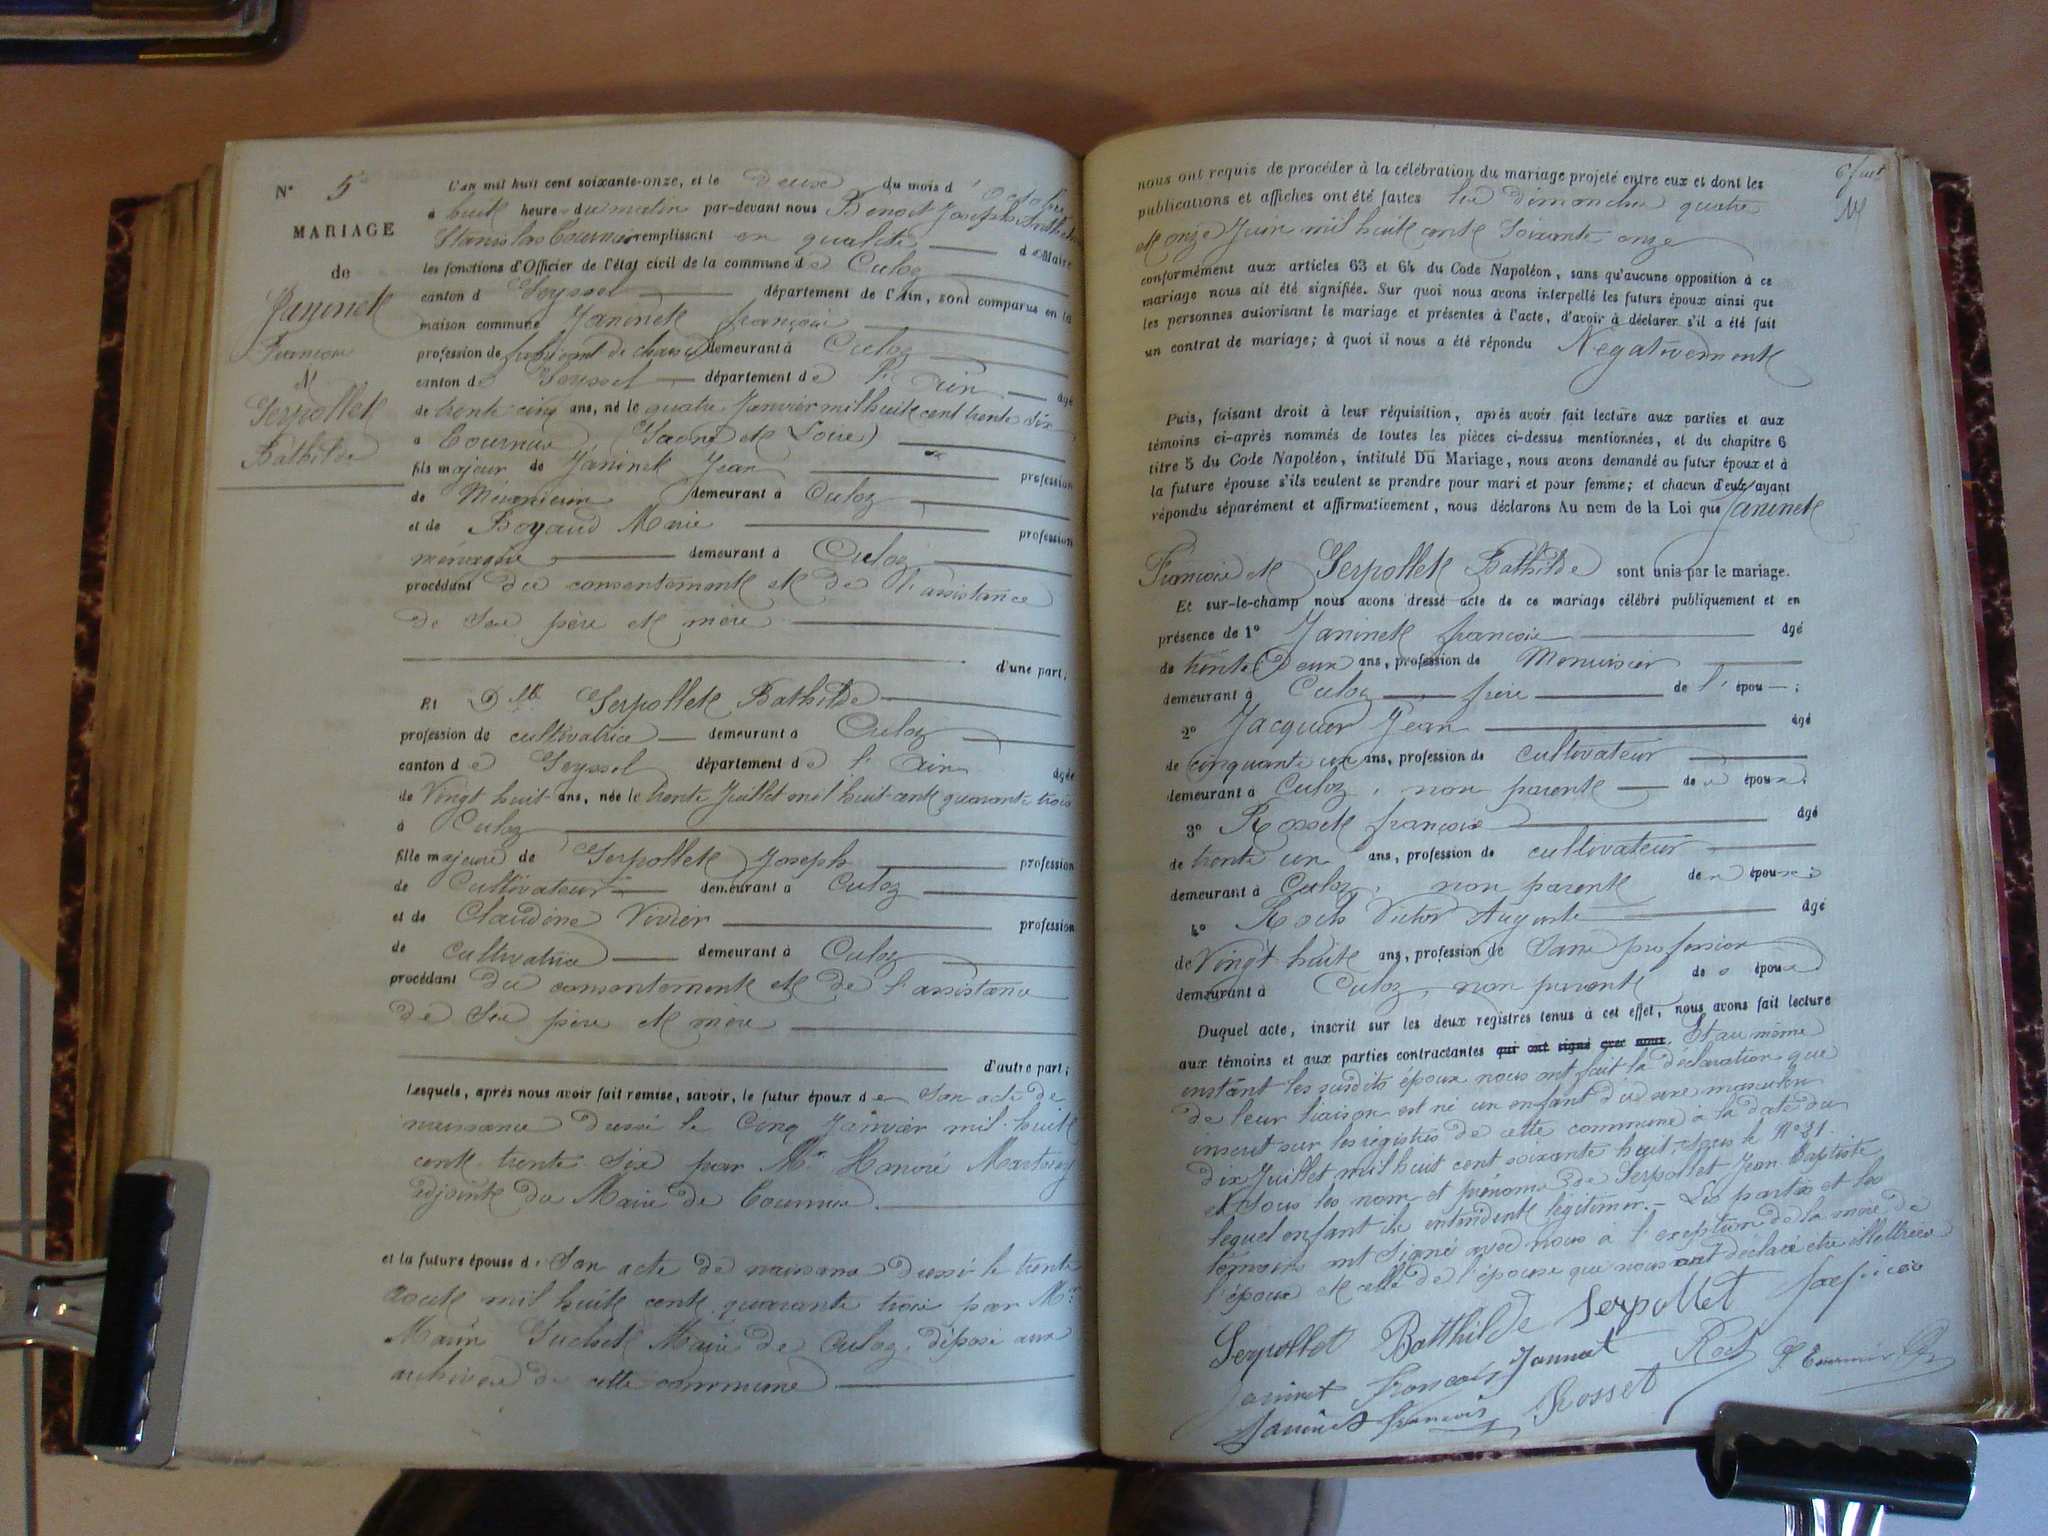 N° 5
MARIAGE
de
Janinet
François
et
Serpollet
Bathilde
L'an mil huit cent soixante-onze, et le deux du mois d'octobre
à huit heures du matin par-devant nous Benoit Joseph
Stanislas remplissant en qualité de Maire
les fonctions d'Officier de l'état civil de la commune de Culoz
canton de Seyssel département de l'Ain, sont comparus en la
maison commune Janinet françois
profession de fabricant de chaises demeurant à Culoz
canton de Seyssel département de l'Ain âgé
de trente cinq ans, né le quatre Janvier mil huit cent trente six
à Tournus (Saone et Loire)
fils majeur de Janinet Jean profession
de demeurant à Culoz
et de Boyaud Marie profession
ménagère demeurant à Culoz
procédant du consentement et de l'assistance
de ses père et mère
d'une part;
Et Dlle Serpollet Bathilde
profession de cultivatrice demeurant à Culoz
canton de Seyssel département de l'Ain âgée
de Vingt huit ans, née le trente Juillet mil huit cent quarante trois
à Culoz
fille majeure de Serpollet Joseph profession
de Cultivateur demeurant à Culoz
et de Claudine Vivier profession
de Cultivatrice demeurant à Culoz
procédant du consentement et de l'assistance
de ses père et mère
d'autre part;
Lesquels, après nous avoir fait remise, savoir, le futur époux de son acte de
naissance dressé le Cinq Janvier mil huit
cent trente six par Mr Honoré
adjoint du Maire de Tournus.
et la future épouse de son acte de naissance dressé le trente
Aout mil huit cent quarante trois par Mr
Suchet Maire de Culoz, déposé aux
archives de cette commune
nous ont requis de procéder à la célébration du mariage projeté entre eux et dont les
publications et affiches ont été faites les dimanches quatre
et onze Juin mil huit cent Soixante onze
conformément aux articles 63 et 64 du Code Napoléon, sans qu'aucune opposition à ce
mariage nous ait été signifiée. Sur quoi nous avons interpellé les futurs époux ainsi que
les personnes autorisant le mariage et présentes à l'acte, d'avoir à déclarer s'il a été fait
un contrat de mariage; à quoi il nous a été répondu Négativement
Puis, faisant droit à leur réquisition, après avoir fait lecture aux parties et aux
témoins ci-après nommés de toutes les pièces ci-dessus mentionnées, et du chapitre 6
titre 5 du Code Napoléon, intitulé Du Mariage, nous avons demandé au futur époux et à
la future épouse s'ils veulent se prendre pour mari et pour femme; et chacun d'eux ayant
répondu séparément et affirmativement, nous déclarons Au nom de la Loi que Janinet
François et Serpollet Bathilde sont unis par le mariage.
Et sur-le-champ nous avons dressé acte de ce mariage célébré publiquement et en
présence de 1° Janinet françois âgé
de trente deux ans, profession de Menuisier
demeurant à Culoz frère de l'époux;
2° Jacquier Jean âgé
de cinquante un ans, profession de cultivateur
demeurant à Culoz, non parent des époux;
3° Rosset françois âgé
de trente un ans, profession de cultivateur
demeurant à Culoz, non parent des époux;
4° Roch Victor Auguste âgé
de Vingt huit ans, profession de Sans profession
demeurant à Culoz, non parent des époux
Duquel acte, inscrit sur les deux registres tenus à cet effet, nous avons fait lecture
aux témoins et aux parties contractantes qui ont signé avec nous. Et au même
instant les susdits époux nous ont fait la déclaration que
de leur liaison est né un enfant du sexe masculin
inscrit sur les régistres de cette commune à la date du
dix Juillet mil huit cent soixante huit, sous le N° 21.
et sous les nom et prénoms de Serpollet Jean Baptiste
lequel enfant ils entendent légitimer. – Les parties et les
témoins ont signé avec nous à l'exception de la mère de
l'époux et celle de l'épouse que nous ont déclaré etre illettrées
Serpollet Batthilde Serpollet
Janinet françois Jannot Roch
Janinet francois Rosset